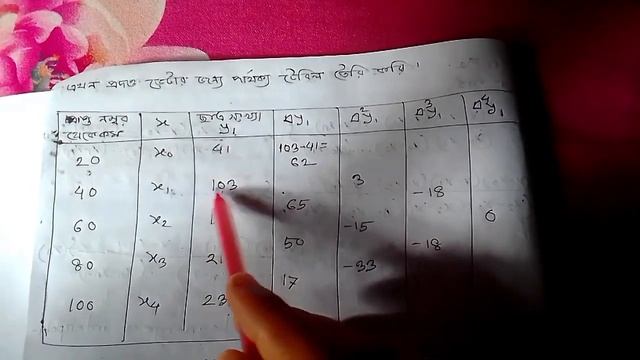 এখন প্রদত্ত ডেটার জন্য পার্থক্য টেবিল তৈরি করি।
প্রাপ্ত নম্বর x ছাত্র সংখ্যা Δy₁ Δ²y₁ Δ³y₁ Δ⁴y₁
y₁
20 x₀ 41 103-41=
62
40 x₁ 103 3 -18
65
60 x₂ -15 0
50 -18
80 x₃ 21 -33
17
100 x₄ 23